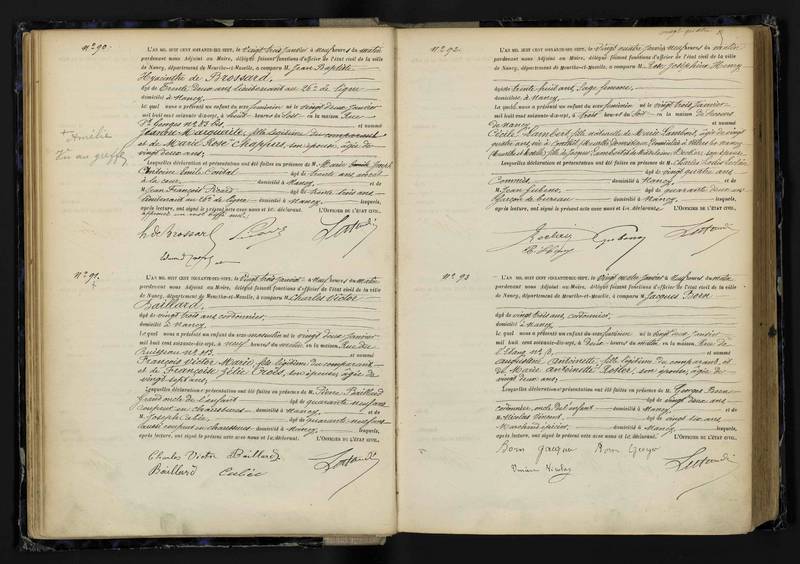 N° 90.
L'AN MIL HUIT CENT SOIXANTE-DIX-SEPT, le vingt trois janvier à neuf heures du matin
pardevant nous Adjoint au Maire, délégué faisant fonctions d'officier de l'état civil de la ville
de Nancy, département de Meurthe-et-Moselle, a comparu M. Jean Baptiste
Hyacinthe de Brossard,
âgé de trente deux ans, lieutenant au 26e de ligne
domicilié à Nancy,
Lequel nous a présenté un enfant du sexe féminin né le vingt deux janvier
mil huit cent soixante-dix-sept, à huit heures du soir en la maison Rue
St Georges et nommé
Marguerite, fille légitime du comparant
et de Marie Rose Chappus, son épouse, âgée de
vingt deux ans;
Lesquelles déclaration et présentation ont été faites en présence de M.
Antoine Emile âgé de trente ans, avocat
à la cour, domicilié à Nancy, et de
M. Jean François Picard âgé de trente trois ans,
lieutenant au 26e de ligne domicilié à Nancy, lesquels,
après lecture, ont signé le présent acte avec nous et le déclarant. L'OFFICIER DE L'ÉTAT CIVIL,
h. de Brossard
+ Amélie
Vu au greffe
N° 91.
L'AN MIL HUIT CENT SOIXANTE-DIX-SEPT, le vingt trois janvier à neuf heures du matin
pardevant nous Adjoint au Maire, délégué faisant fonctions d'officier de l'état civil de la ville
de Nancy, département de Meurthe-et-Moselle, a comparu M. Charles Victor
Baillard,
âgé de vingt trois ans, cordonnier,
domicilié à Nancy,
Lequel nous a présenté un enfant du sexe masculin né le vingt deux janvier
mil huit cent soixante-dix-sept, à neuf heures du matin en la maison Rue du
Ruisseau et nommé
François Victor Marie, fils légitime du comparant
et de Françoise Félie Crois, son épouse, âgée de
vingt sept ans;
Lesquelles déclaration et présentation ont été faites en présence de M. Pierre Baillard
Grand oncle de l'enfant âgé de quarante neuf ans
coupeur en chaussures domicilié à Nancy, et de
M. Joseph âgé de quarante neuf ans
aussi coupeur en chaussures domicilié à Nancy, lesquels,
après lecture, ont signé le présent acte avec nous et le déclarant. L'OFFICIER DE L'ÉTAT CIVIL,
Charles Victor Baillard
Baillard
vingt quatre
N° 92.
L'AN MIL HUIT CENT SOIXANTE-DIX-SEPT, le vingt quatre janvier neuf heures du matin
pardevant nous Adjoint au Maire, délégué faisant fonctions d'officier de l'état civil de la ville
de Nancy, département de Meurthe-et-Moselle, a comparu M. Joséphine
âgée de trente huit ans, sage femme,
domiciliée à Nancy,
Laquelle nous a présenté un enfant du sexe féminin né le vingt trois janvier
mil huit cent soixante-dix-sept, à trois heures du soir en la maison de Secours
de Nancy et nommé
Cécile Lambert, fille naturelle de Marie Lambert, âgée de vingt
quatre ans,
Lesquelles déclaration et présentation ont été faites en présence de M. Charles Louis
âgé de vingt quatre ans
Commis, domicilié à Nancy, et de
M. Jean âgé de quarante deux ans
Garçon de bureau domicilié à Nancy, lesquels,
après lecture, ont signé le présent acte avec nous et la déclarante. L'OFFICIER DE L'ÉTAT CIVIL,
N° 93
L'AN MIL HUIT CENT SOIXANTE-DIX-SEPT, le vingt quatre janvier à neuf heures du matin
pardevant nous Adjoint au Maire, délégué faisant fonctions d'officier de l'état civil de la ville
de Nancy, département de Meurthe-et-Moselle, a comparu M. Jacques Born
âgé de vingt trois ans, cordonnier,
domicilié à Nancy,
Lequel nous a présenté un enfant du sexe féminin né le vingt deux janvier
mil huit cent soixante-dix-sept, à deux heures du matin en la maison Rue de
l'Etang et nommé
Augustine Antoinette, fille légitime du comparant et
de Marie Antoinette, son épouse, âgée de
vingt deux ans;
Lesquelles déclaration et présentation ont été faites en présence de M. Georges Born
âgé de vingt deux ans,
cordonnier, oncle de l'enfant domicilié à Nancy, et de
M. Nicolas âgé de vingt six ans
Marchand épicier domicilié à Nancy, lesquels,
après lecture, ont signé le présent acte avec nous et le déclarant. L'OFFICIER DE L'ÉTAT CIVIL,
Born Jacques Born
Nicolas